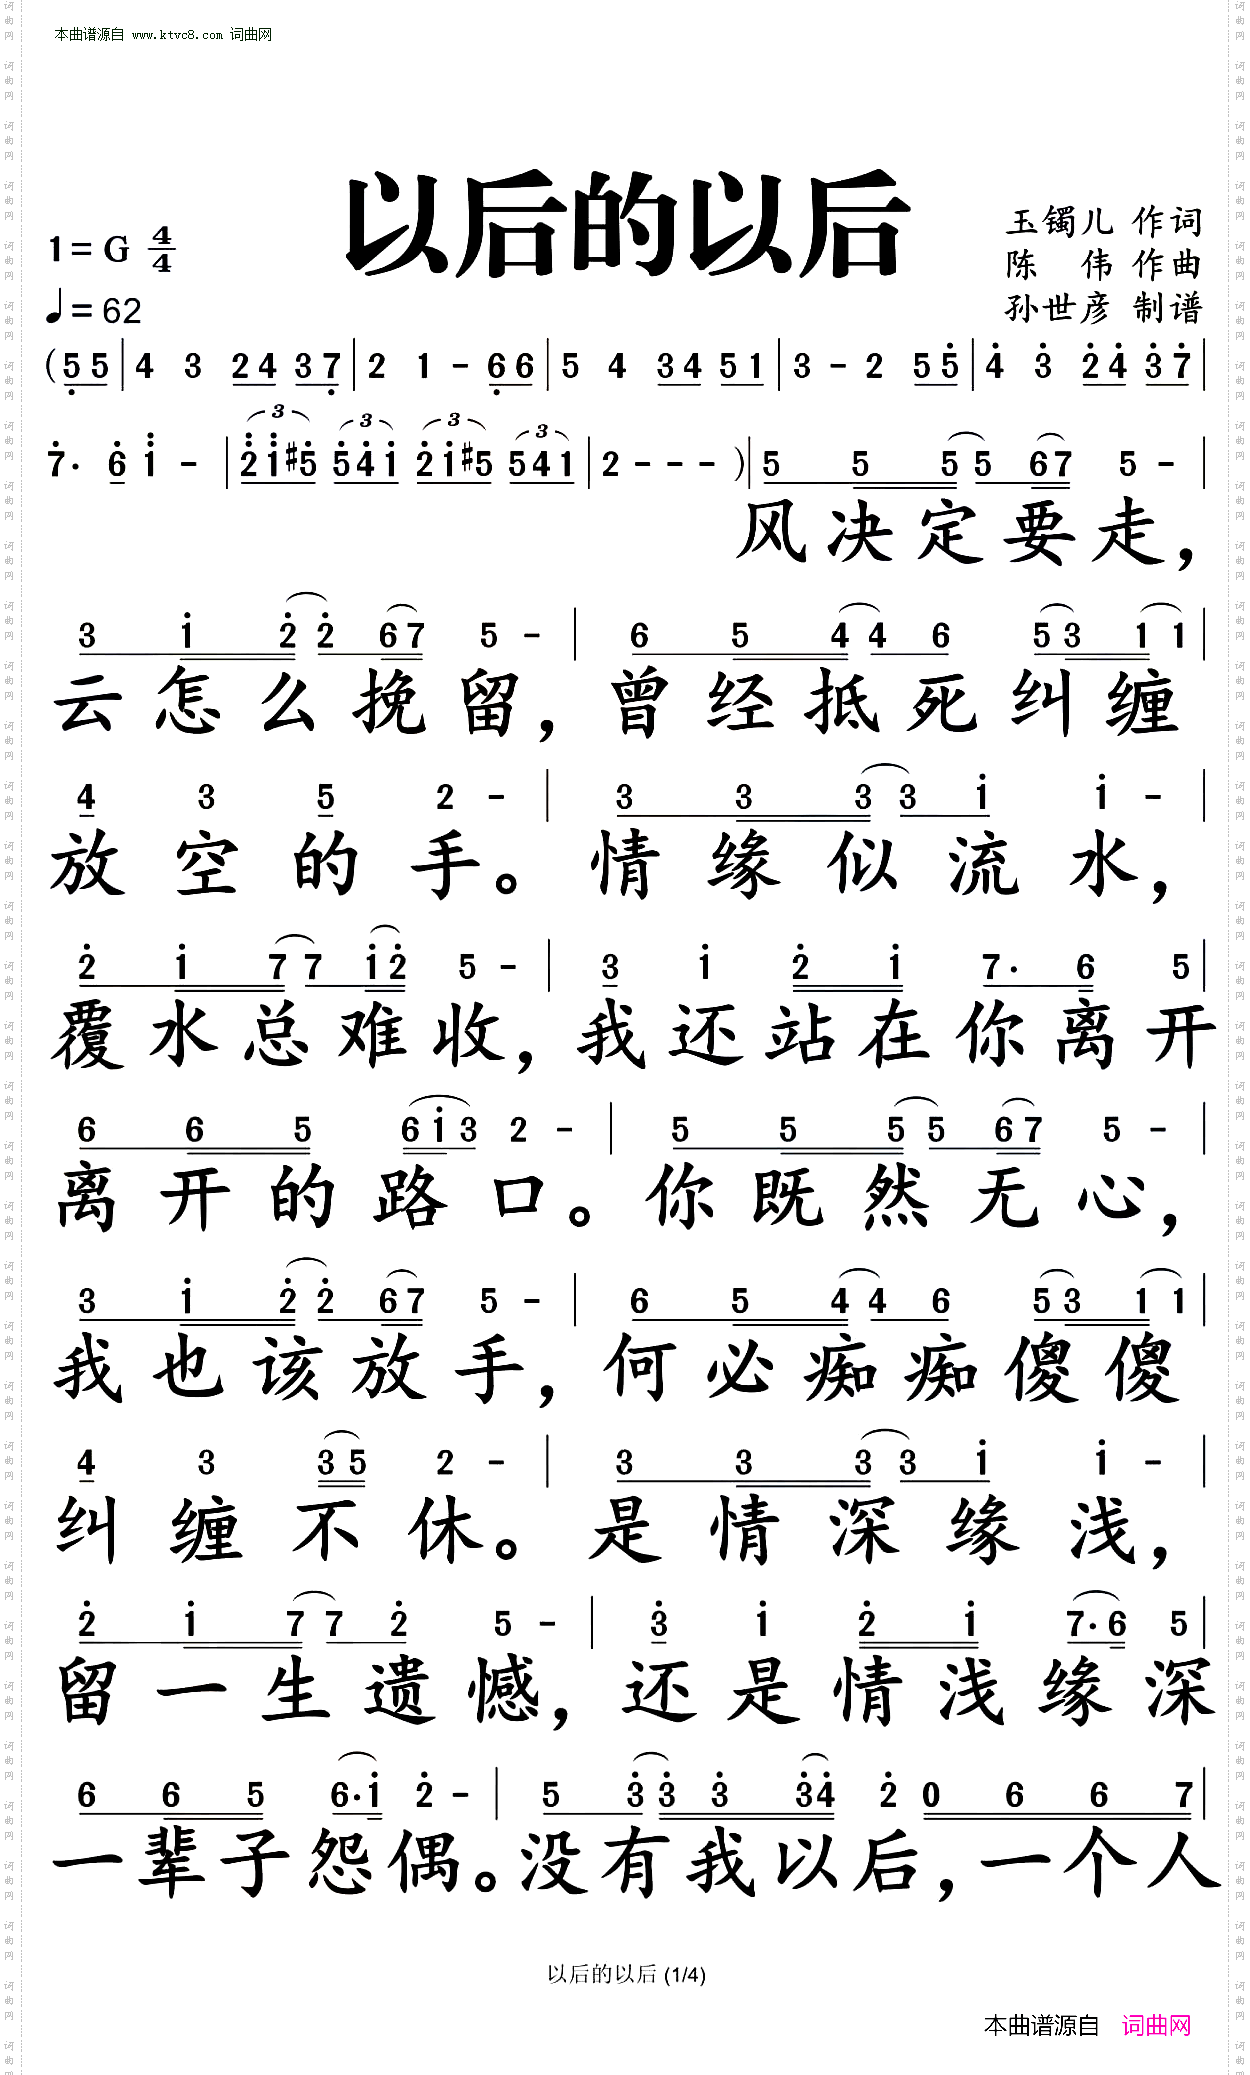 本曲谱源自 www.ktvc8.com 词曲网
以后的以后
1=G 4/4
♩=62
玉镯儿 作词
陈 伟 作曲
孙世彦 制谱
(5 5 | 4 3 2 4 3 7 | 2 1 - 6 6 | 5 4 3 4 5 1 | 3 - 2 5 5 | 4 3 2 4 3 7 |
7· 6 1 - | 2 1 #5 5 4 1 2 1 #5 5 4 1 | 2 - - - ) | 5 5 5 5 6 7 5 - |
3 3 3 3
风决定要走，
3 1 2 2 6 7 5 - | 6 5 4 4 6 5 3 1 1 |
云怎么挽留，曾经抵死纠缠
4 3 5 2 - | 3 3 3 3 1 1 - |
放空的手。情缘似流水，
2 1 7 7 1 2 5 - | 3 1 2 1 7· 6 5 |
覆水总难收，我还站在你离开
6 6 5 6 1 3 2 - | 5 5 5 5 6 7 5 - |
离开的路口。你既然无心，
3 1 2 2 6 7 5 - | 6 5 4 4 6 5 3 1 1 |
我也该放手，何必痴痴傻傻
4 3 3 5 2 - | 3 3 3 3 1 1 - |
纠缠不休。是情深缘浅，
2 1 7 7 2 5 - | 3 1 2 1 7· 6 5 |
留一生遗憾，还是情浅缘深
6 6 5 6· 1 2 - | 5 3 3 3 3 4 2 0 6 6 7 |
一辈子怨偶。没有我以后，一个人
以后的以后 (1/4)
本曲谱源自 词曲网